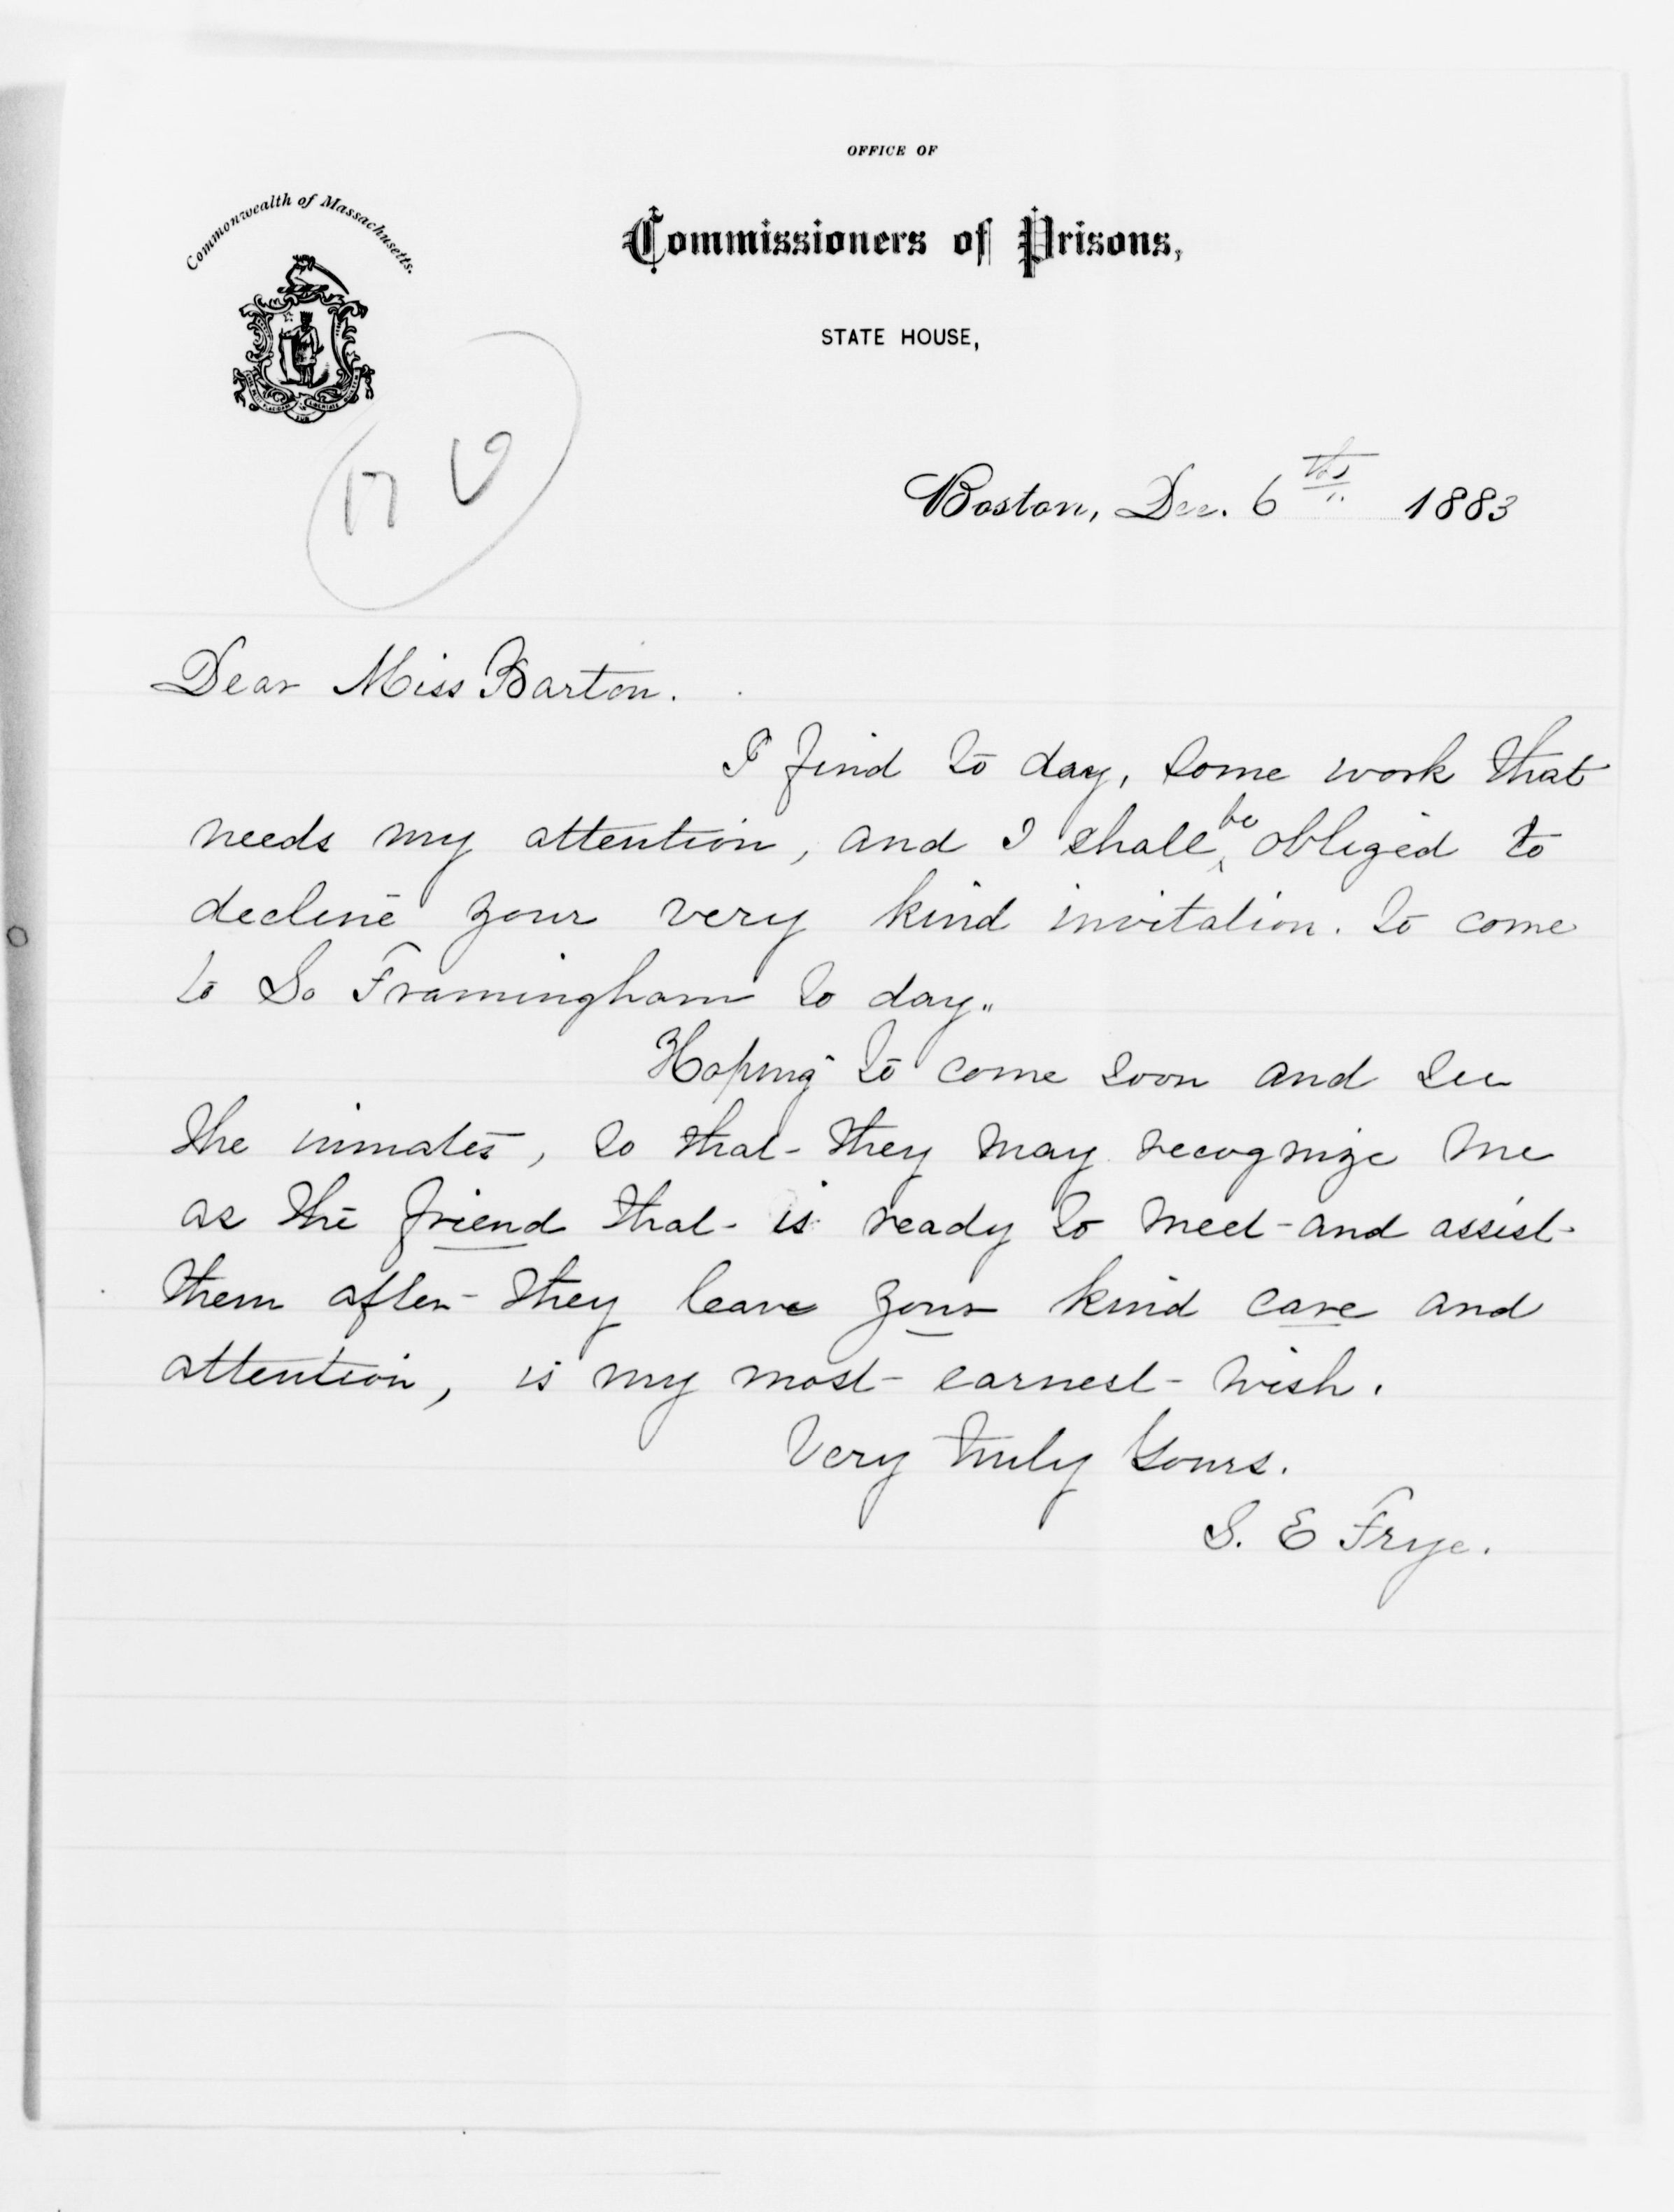 OFFICE OF
Commonwealth of Massachusetts.
Commissioners of Prisons,
STATE HOUSE,
Boston, Dec. 6th 1883
Dear Miss Barton.
I find to day, some work that
needs my attention, and I shall be obliged to
decline your very kind invitation. to come
to So Framingham to day.
Hoping to come soon and see
the inmates, so that they may recognize me
as the friend that is ready to meet and assist
them after they leave your kind care and
attention, is my most earnest wish.
Very truly Yours.
S. E Frye.